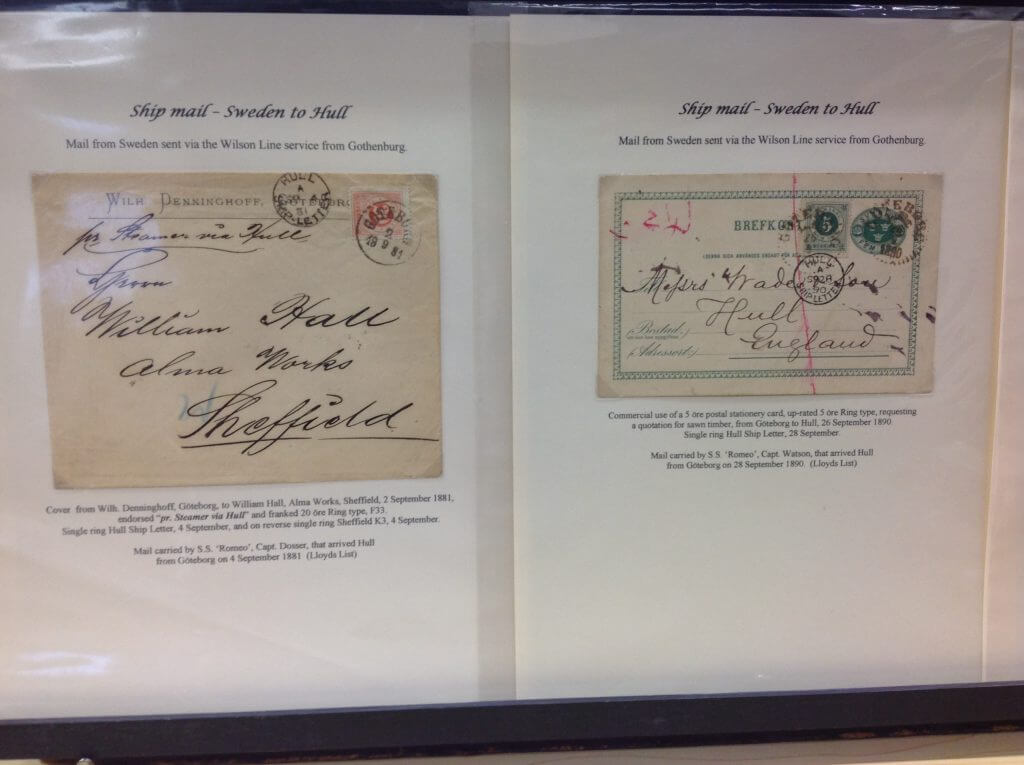 Ship mail – Sweden to Hull
Mail from Sweden sent via the Wilson Line service from Gothenburg.
WILH. DENNINGHOFF, GÖTEBORG
HULL
A
SHIP-LETTER
GÖTEBORG
2
9
81
pr Steamer via Hull
Herrn
William Hall
Alma Works
Sheffield
Cover from Wilh. Denninghoff, Göteborg, to William Hall, Alma Works, Sheffield, 2 September 1881,
endorsed "pr. Steamer via Hull" and franked 20 öre Ring type, F33.
Single ring Hull Ship Letter, 4 September, and on reverse single ring Sheffield K3, 4 September.
Mail carried by S.S. 'Romeo', Capt. Dosser, that arrived Hull
from Göteborg on 4 September 1881 (Lloyds List)
Ship mail – Sweden to Hull
Mail from Sweden sent via the Wilson Line service from Gothenburg.
BREFKORT
5
1890
HULL
A
SP 28
90
SHIP LETTER
Messrs Wade Son
Hull
England
(Bostad)
(Adressort)
Commercial use of a 5 öre postal stationery card, up-rated 5 öre Ring type, requesting
a quotation for sawn timber, from Göteborg to Hull, 26 September 1890.
Single ring Hull Ship Letter, 28 September.
Mail carried by S.S. 'Romeo', Capt. Watson, that arrived Hull
from Göteborg on 28 September 1890. (Lloyds List)